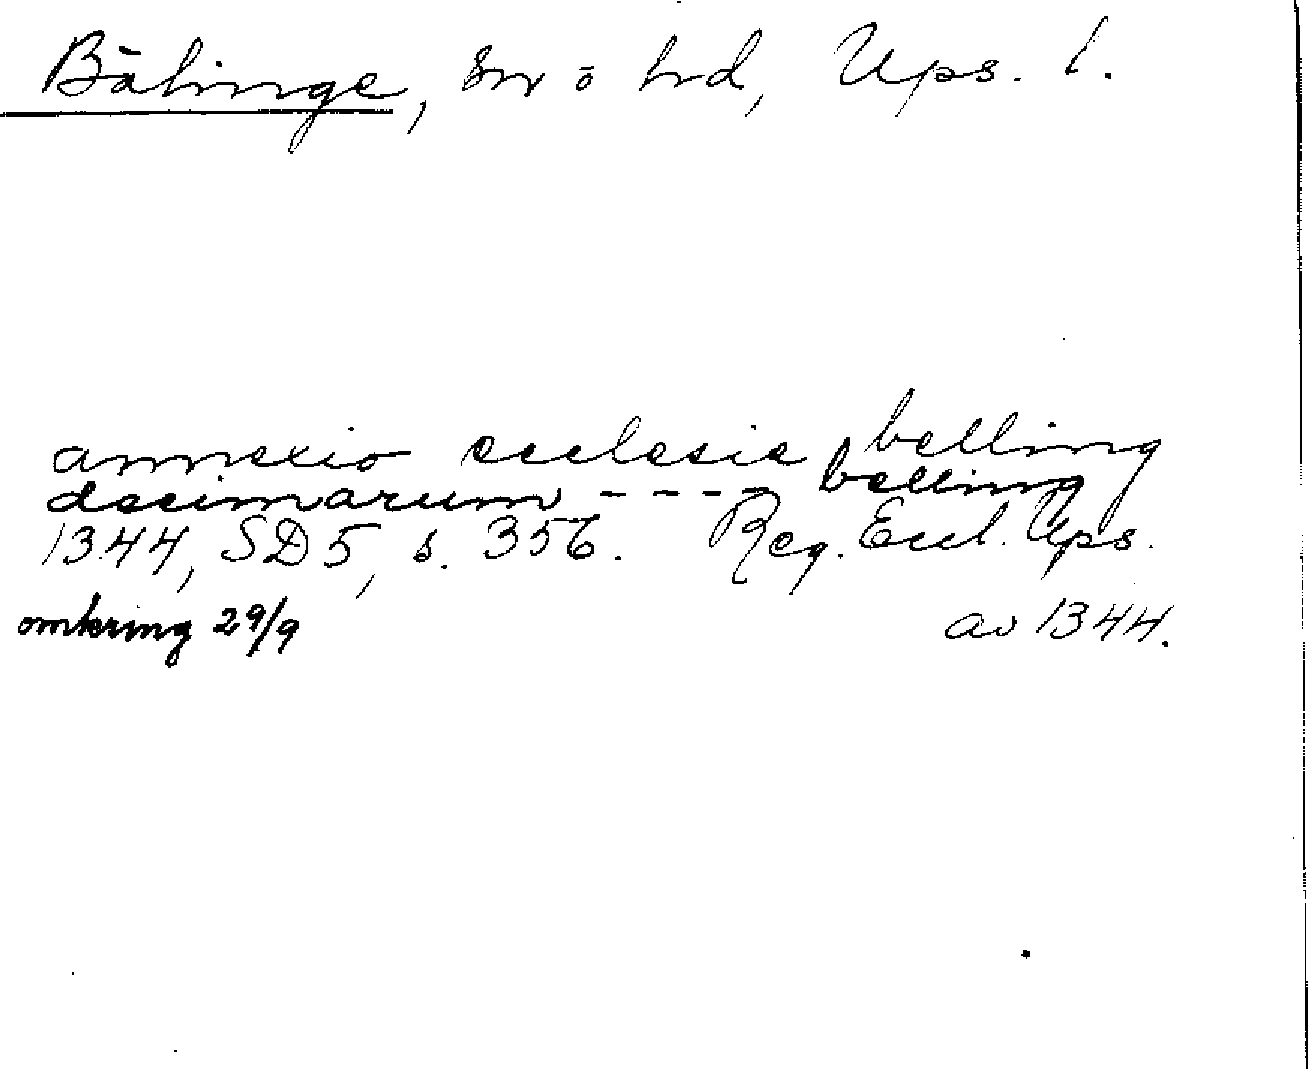 Bälinge, sn o hd, Ups. l.
annexio ecclesie belling
decimarum - - - - belling
1344, SD 5, s. 356. Reg. Eccl. Ups.
omkring 29/9 av 1344.